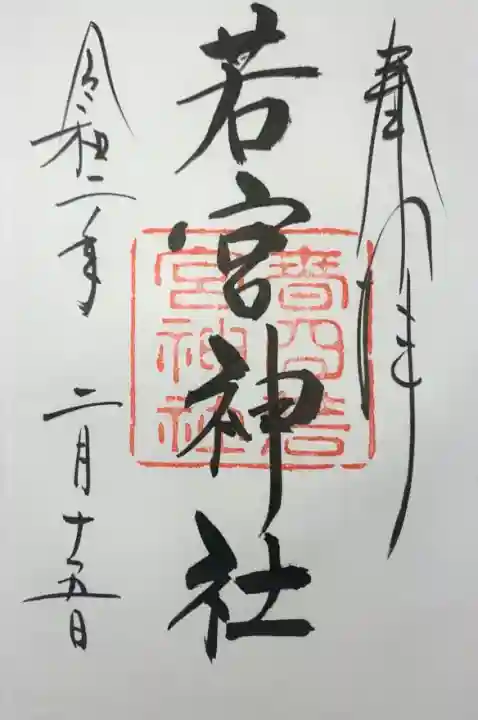 奉拝
若宮神社
春日若宮神社
令和二年 二月十五日